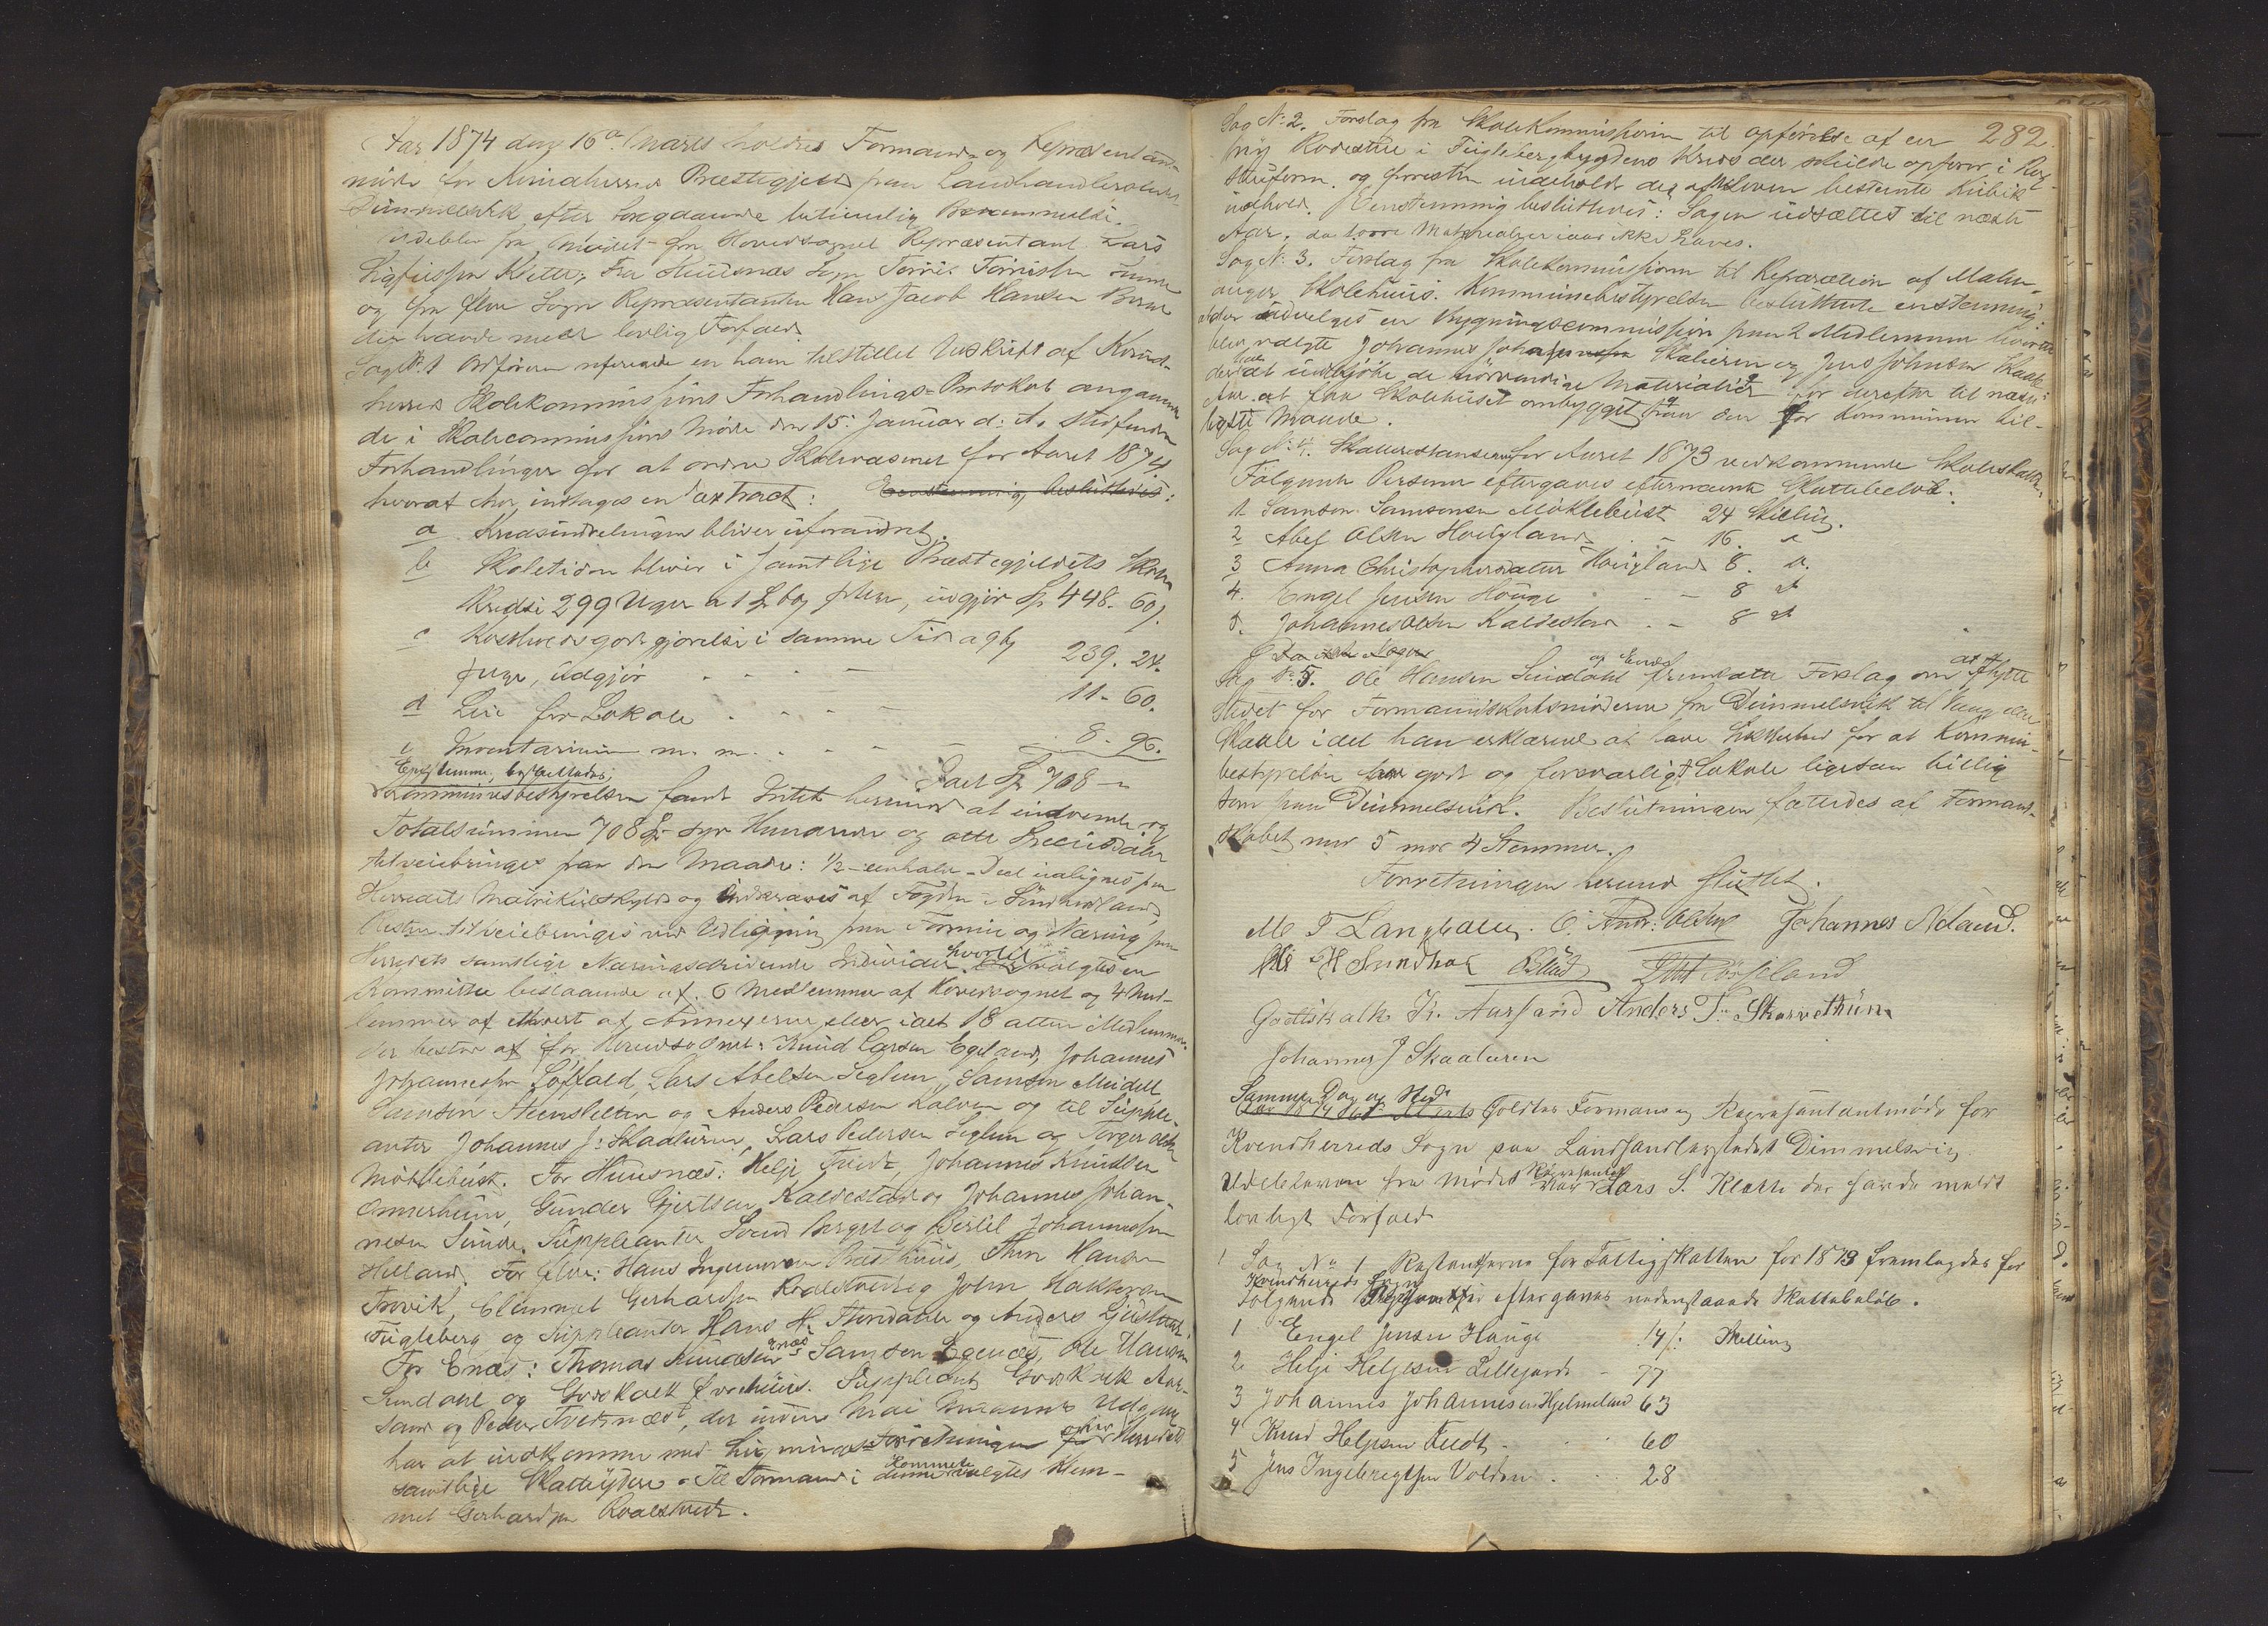 Aar 1874 den 16de Marts holdtes Formands og Repræsentant-
møde for Kvindherred Præstegjeld paa Landhandlerstedet
Dimmelsvik efter foregaaende betimelig Berammelse.
Udeblev fra Mødet fra Hovedsognet Repræsentant Lars
Sigfussen Klette, Fra Huusnæs Sogn Tørris Tørrissen Sunde
og fra Ølve Sogn Repræsentanten Hans Jacob Hansen
der havde meldt lovlig Forfald.
Sag No 1 Ordføreren refererede en ham tilstillet Udskrift af Kvind-
herreds Skolekommissions Forhandlings-Protokol angaaen-
de i Skolecommissions Møde den 15. Januar d. A. stedfundne
Forhandlinger for at ordne Skolevæsenet for Aaret 1874
hvoraf her indtages en Extract: Eenstemmig besluttedes:
a Kredsinddelingen bliver uforandret.
b Skoletiden bliver i samtlige Præstegjeldets Skole
Kredse 299 Uger a 1 Sp 60 s pr Uge, udgjør Sp 448. 60 s.
c Kostholdsgodtgjørelse i samme Tid a 96 s
pr Uge, udgjør 239. 24.
d Leie for Lokale 11 - 60.
e Inventarium m. m. 8 - 96.
Eenstemmig besluttedes; Ialt Sp 708 - "
Kommunebestyrelsen fandt Intet herimod at indvende og
Totalsummen 708 Sp syv Hundrede og otte Speciedaler
tilveiebringes paa den Maade: 1/2 - eenhalv - Deel udlignes paa
Herredets Matrikulskyld og indkræves af Fogden i Søndhordland,
Resten tilveiebringes ved Udligning paa Formue og Næring paa
Herredets samtlige Næringsdrivende Individer hvortil valgtes en
Kommitte bestaaende af 6 Medlemmer af Hovedsognet og 4 Med-
lemmer af ethvert af Annexerne eller ialt 18 atten Medlemmer.
der bestod af for Hovedsognet: Knud Larsen Egeland, Johannes
Johannessen Løffald, Lars Abelsen Seglem, Samson Meidell,
Samson Steensletten og Anders Pedersen Kalven og til Supple-
anter Johannes J. Skaaluren, Lars Pedersen Seglem og Torger Olsen
Møklebust. For Huusnæs: Helje Tveit, Johannes Knudsen
Onnerheim, Gunder Gjertsen Kaldestad og Johannes Johan-
nesen Sunde. Suppleanter Svend Berget og Bertel Johannessen
Helland. For Ølve: Hans Ingemundsen Brethuus, Thore Hansen
Trovik, Clemmet Gerhardsen Roaldstveit og John Haktorsen
Fugleberg og Suppleanter Hans H. Thondahl og Anders Ljustad.
For Enæs: Thomas Knudsen Ænæs, Samson Egenæs, Ole Hansen
Sundahl og Godskalk Børehuus. Suppleant Godskalk Aar-
sand og Peder Tveitnæs, der inden Mai Maaneds Udgang
har at indkomme med Ligningsforretningen over Herredets
samtlige Skatteydere. Til Formand i denne Kommitte valgtes Klem-
met Gerhardsen Roaldstveit.
282.
Sag No 2. Forslag fra Skolekommissionen til opførelse af en
ny Rodestue i Fuglebergbygdens Kreds der skulde opføres i Røg-
stueform og forresten indeholdt det af Skoleloven bestemte Kubik
indhold. Eenstemmig besluttedes: Sagen udsættes til næste
Aar, da tørre Materialier iaar ikke haves.
Sag No 3. Forslag fra Skolekommissionen til Reparation af Malm-
anger Skolehuus. Kommunebestyrelsen besluttede enstemmig:
at der udvælges en Bygningscommission paa 2 Medlemmer hvortil
blev valgte Johannes Johannessen Skaluren og Jens Johnsen Skaale
der har at indkjøbe de nødvendige Materialier for derefter til næste
Aar at faa Skolehuset ombygget paa den for Kommunen til-
ligste Maade.
Sag No 4. Skatterestanserne for Aaret 1873 vedkommende Skoleskatten.
Følgende Personer eftergaves efternævnte Skattebeløb:
1 Samson Samsonsen Møklebust 24 Skilling.
2 Abel Olsen Hovgland - 16. "
3 Anna Christophersdatter Hovgland 8. "
4. Engel Jensen Houge - 8 "
5. Johannes Olsen Kaldestad - 8 "
Sag No 5. Ole Hansen Sundahl og Enæs fremsatte Forslag om at flytte
Stedet for Formandskabsmøderne fra Dimmelsvik til Vang eller
Skaale idet han erklærede at have Sikkerhed for at Kommun-
bestyrelsen har godt og forsvarligt Lokale ligesaa billig
som paa Dimmelsvik. Beslutningen fattedes af Formand-
skabet med 5 mod 4 Stemmer.
Forretningen hermed sluttet.
M. T. Langballe. O. Andr: Olsen Johannes Neland.
Ole H Sundhal
Godtskalk Kr. Aarsand Anders T. Skarvethun
Johannes J Skaaluren
Samme Dag og Sted
holdtes Formands og Repræsentantmøde for
Kvindherreds Sogn paa Landhandlerstedet Dimmelsvig
Udebleven fra Mødet Repræsentant Lars S. Klette der havde meldt
lovligt Forfald
1 Sag No 1 Restantserne for Fattigskatten for 1873 fremlagdes for
Kvindherreds Sogn
Følgende eftergaves nedenstaaende Skattebeløb.
1 Engel Jensen Hauge 141. Skilling
2 Helje Heljesen Lillejord - 77
3 Johannes Johannesen Hjelmeland 63
4 Knud Heljesen Tvedt - 60
5 Jens Ingebregtsen Volden 28